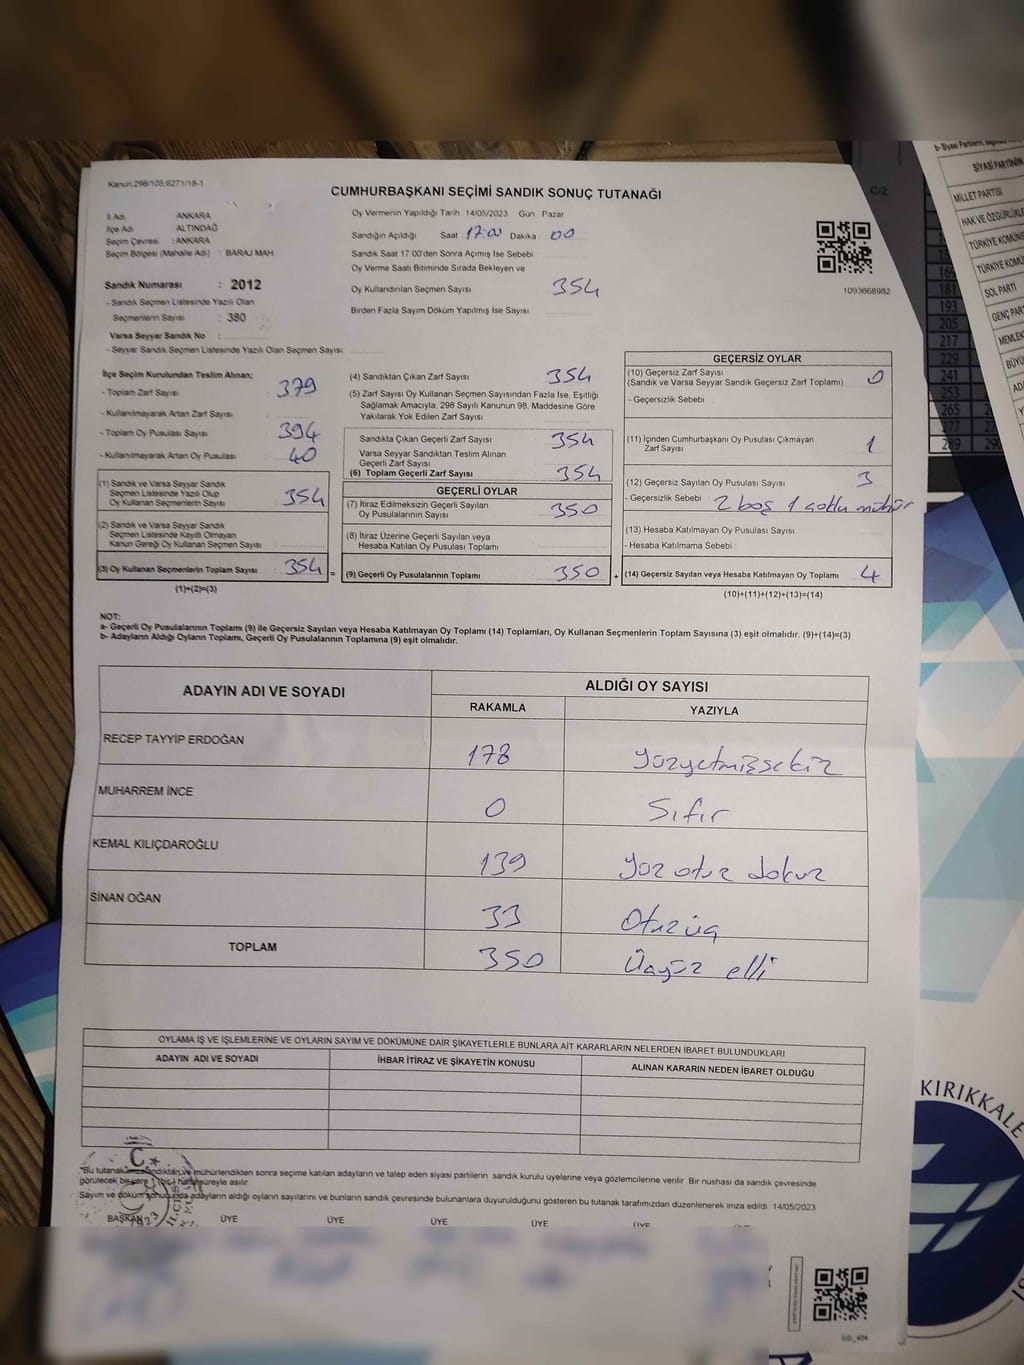 Kanun,298/105,6271/18-1
CUMHURBAŞKANI SEÇİMİ SANDIK SONUÇ TUTANAĞI
C/2
İl Adı ANKARA
İlçe Adı ALTINDAĞ
Seçim Çevresi : ANKARA
Seçim Bölgesi (Mahalle Adı) : BARAJ MAH.
Sandık Numarası : 2012
- Sandık Seçmen Listesinde Yazılı Olan
Seçmenlerin Sayısı : 380
Varsa Seyyar Sandık No :
- Seyyar Sandık Seçmen Listesinde Yazılı Olan Seçmen Sayısı:
Oy Vermenin Yapıldığı Tarih 14/05/2023 Gün Pazar
Sandığın Açıldığı Saat 17:00 Dakika : 00
Sandık Saat 17.00'den Sonra Açımış İse Sebebi
Oy Verme Saati Bitiminde Sırada Bekleyen ve
Oy Kullandırılan Seçmen Sayısı 354
Birden Fazla Sayım Döküm Yapılmış İse Sayısı
1093668982
İlçe Seçim Kurulundan Teslim Alınan;
- Toplam Zarf Sayısı : 379
- Kullanılmayarak Artan Zarf Sayısı :
- Toplam Oy Pusulası Sayısı : 394
- Kullanılmayarak Artan Oy Pusulası : 40
(1) Sandık ve Varsa Seyyar Sandık
Seçmen Listesinde Yazılı Olup
Oy Kullanan Seçmenlerin Sayısı : 354
(2) Sandık ve Varsa Seyyar Sandık
Seçmen Listesinde Kayıtlı Olmayan
Kanun Gereği Oy Kullanan Seçmen Sayısı :
(3) Oy Kullanan Seçmenlerin Toplam Sayısı : 354 =
(1)+(2)=(3)
(4) Sandıktan Çıkan Zarf Sayısı 354
(5) Zarf Sayısı Oy Kullanan Seçmen Sayısından Fazla İse, Eşitliği
Sağlamak Amacıyla, 298 Sayılı Kanunun 98. Maddesine Göre
Yakılarak Yok Edilen Zarf Sayısı
Sandıkta Çıkan Geçerli Zarf Sayısı 354
Varsa Seyyar Sandıktan Teslim Alınan
Geçerli Zarf Sayısı
(6) Toplam Geçerli Zarf Sayısı 354
GEÇERLİ OYLAR
(7) İtiraz Edilmeksizin Geçerli Sayılan
Oy Pusulalarının Sayısı 350
(8) İtiraz Üzerine Geçerli Sayılan veya
Hesaba Katılan Oy Pusulası Toplamı
(9) Geçerli Oy Pusulalarının Toplamı 350 +
GEÇERSİZ OYLAR
(10) Geçersiz Zarf Sayısı
(Sandık ve Varsa Seyyar Sandık Geçersiz Zarf Toplamı) 0
- Geçersizlik Sebebi :
(11) İçinden Cumhurbaşkanı Oy Pusulası Çıkmayan
Zarf Sayısı 1
(12) Geçersiz Sayılan Oy Pusulası Sayısı 3
- Geçersizlik Sebebi : 2 boş 1 çoklu mühür
(13) Hesaba Katılmayan Oy Pusulası Sayısı
- Hesaba Katılmama Sebebi :
(14) Geçersiz Sayılan veya Hesaba Katılmayan Oy Toplamı 4
(10)+(11)+(12)+(13)=(14)
NOT:
a- Geçerli Oy Pusulalarının Toplamı (9) ile Geçersiz Sayılan veya Hesaba Katılmayan Oy Toplamı (14) Toplamları, Oy Kullanan Seçmenlerin Toplam Sayısına (3) eşit olmalıdır. (9)+(14)=(3)
b- Adayların Aldığı Oyların Toplamı, Geçerli Oy Pusulalarının Toplamına (9) eşit olmalıdır.
ADAYIN ADI VE SOYADI
ALDIĞI OY SAYISI
RAKAMLA YAZIYLA
RECEP TAYYİP ERDOĞAN 178 Yüzyetmişsekiz
MUHARREM İNCE 0 Sıfır
KEMAL KILIÇDAROĞLU 139 Yüz otuz dokuz
SİNAN OĞAN 33 Otuzüç
TOPLAM 350 Üçyüz elli
OYLAMA İŞ VE İŞLEMLERİNE VE OYLARIN SAYIM VE DÖKÜMÜNE DAİR ŞİKAYETLERLE BUNLARA AİT KARARLARIN NELERDEN İBARET BULUNDUKLARI
ADAYIN ADI VE SOYADI İHBAR İTİRAZ VE ŞİKAYETİN KONUSU ALINAN KARARIN NEDEN İBARET OLDUĞU
*Bu tutanak imzalandıktan ve mühürlendikten sonra seçime katılan adayların ve talep eden siyasi partilerin sandık kurulu üyelerine veya gözlemcilerine verilir. Bir nüshası da sandık çevresinde
görülecek bir yere 1 (bir) hafta süreyle asılır.
Sayım ve döküm sonucunda adayların aldığı oyların sayılarını ve bunların sandık çevresinde bulunanlara duyurulduğunu gösteren bu tutanak tarafımızdan düzenlenerek imza edildi. 14/05/2023
BAŞKAN ÜYE ÜYE ÜYE ÜYE ÜYE
b- Siyasi Partilerin,
SİYASİ PARTİNİN
MİLLET PARTİSİ
HAK VE ÖZGÜRLÜKLE
TÜRKİYE KOMÜNİS
TÜRKİYE KOMÜ
SOL PARTİ
GENÇ PAR
MEMLEK
BÜYÜ
181
193
205
217
229
241
253
265
277
289
KIRIKKALE